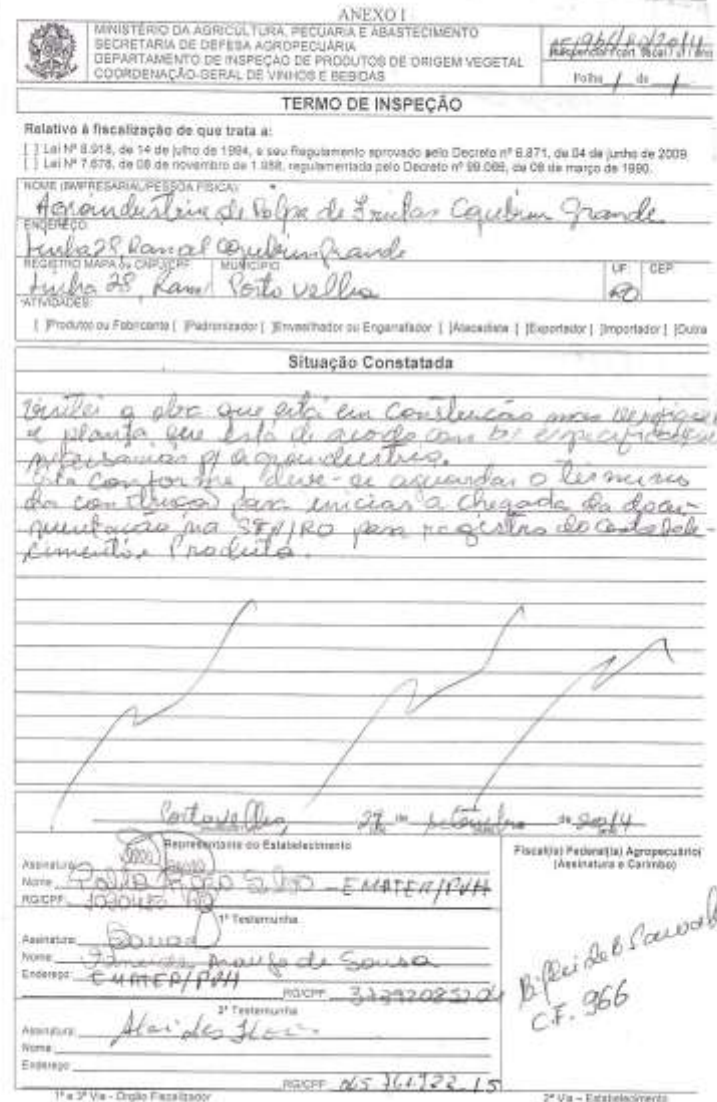 ANEXO I
MINISTÉRIO DA AGRICULTURA, PECUÁRIA E ABASTECIMENTO
SECRETARIA DE DEFESA AGROPECUÁRIA
DEPARTAMENTO DE INSPEÇÃO DE PRODUTOS DE ORIGEM VEGETAL
COORDENAÇÃO-GERAL DE VINHOS E BEBIDAS
Folha 1 de 1
TERMO DE INSPEÇÃO
Relativo à fiscalização de que trata a:
[ ] Lei Nº 8.918, de 14 de julho de 1994, e seu Regulamento aprovado pelo Decreto nº 6.871, de 04 de junho de 2009
[ ] Lei Nº 7.678, de 08 de novembro de 1.988, regulamentada pelo Decreto nº 99.066, de 08 de março de 1990.
NOME (EMPRESARIAL/PESSOA FÍSICA):
Agroindustria de Polpa de Frutas Grande
ENDEREÇO:
Linha 28, Ramal
REGISTRO MAPA ou CNPJ/CPF MUNICÍPIO UF: CEP:
Linha 28, Ramal Porto Velho RO
ATIVIDADES:
[ ]Produtor ou Fabricante [ ]Padronizador [ ]Envasilhador ou Engarrafador [ ]Atacadista [ ]Exportador [ ]Importador [ ]Outra
Situação Constatada
a obra que está em Construção mas
a planta que está de acordo com as
necessárias p/ agroindustria.
Conforme, deve-se aguardar o termino
da construção para iniciar a chegada da docu-
mentação na para registro do estabele-
cimento e Produto.
Porto velho, 27 de setembro de 2014
Representante do Estabelecimento
Assinatura:
Nome - EMATER/PVH
RG/CPF
1ª Testemunha
Assinatura: Sousa
Nome: Araujo de Sousa
Endereço: EMATER/PVH
RG/CPF
2ª Testemunha
Assinatura: Alaides
Nome
Endereço
RG/CPF
Fiscal(is) Federal(is) Agropecuário(
(Assinatura e Carimbo)
C.F. 966
1ª e 3ª Via - Órgão Fiscalizador 2ª Via – Estabelecimento